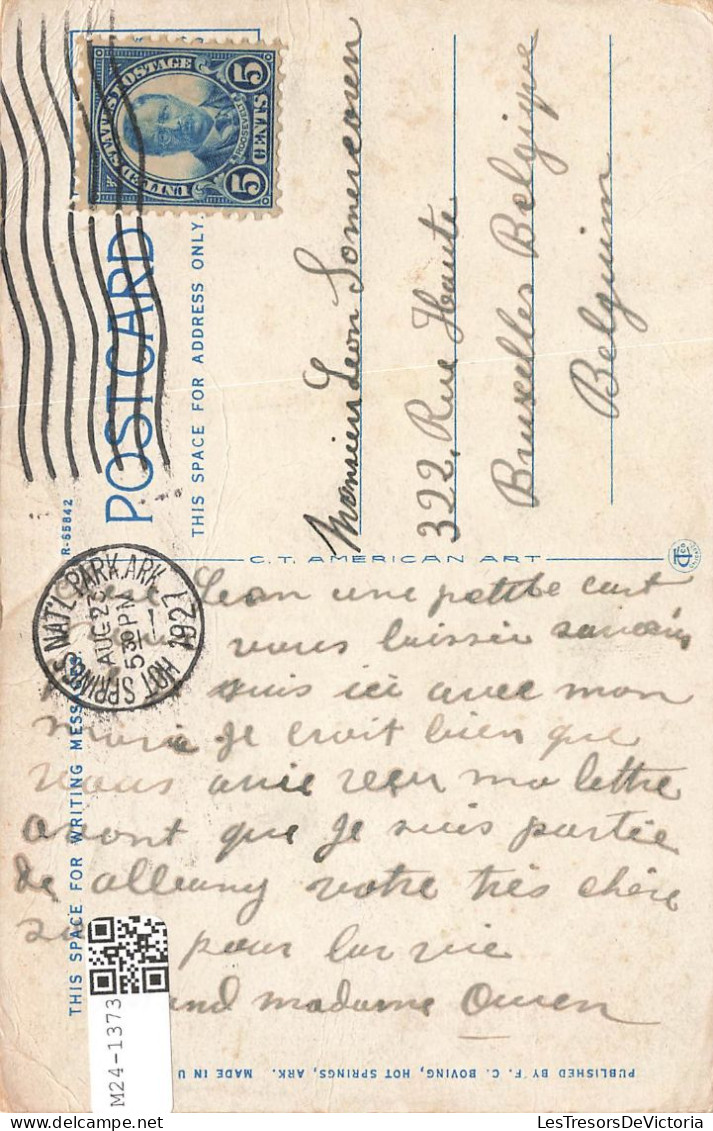 UNITED STATES POSTAGE
ROOSEVELT
5 CENTS 5
POSTCARD
THIS SPACE FOR ADDRESS ONLY
R-65842
THIS SPACE FOR WRITING
C.T. AMERICAN ART
HOT SPRINGS NAT'L PARK, ARK.
AUG 25
5 30 PM
1927
Monsieur Leon Somercouen
322. Rue Haute
Bruxelles Belgique
Belguim
Leon une petite cart
vous laissée savoir
suis ici avec mon
marie je croit bien que
vous avie reçu ma lettre
avont que je suis partie
de votre très chère
pour la vie
and madame Owen
PUBLISHED BY F. C. BOVING, HOT SPRINGS, ARK. MADE IN U
M24-1373
LesTresorsDeVictoria
delcampe.net